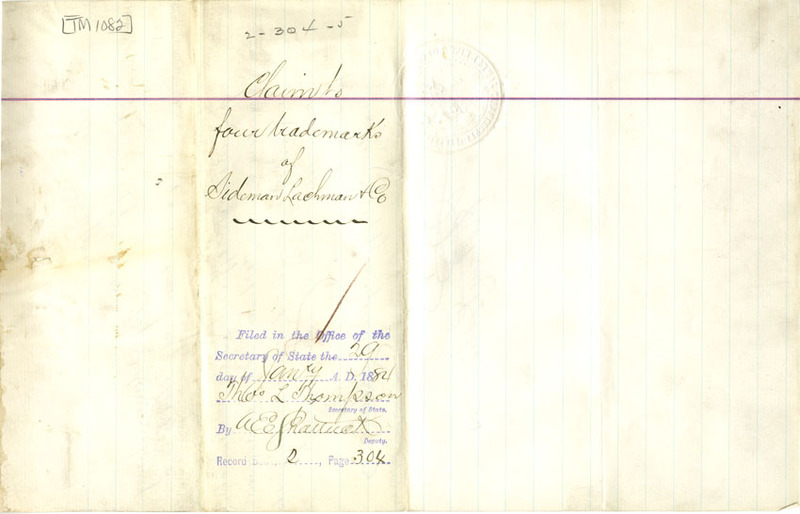 [TM 1082]
2-304-5
Claim to
four trademarks
of
Sideman Lachman & Co
Filed in the Office of the
Secretary of State the 29
day of Jan'ry A. D. 1884
Thos L Thompson
Secretary of State.
By A E Shattuck
Deputy.
Record Book 2, Page 304